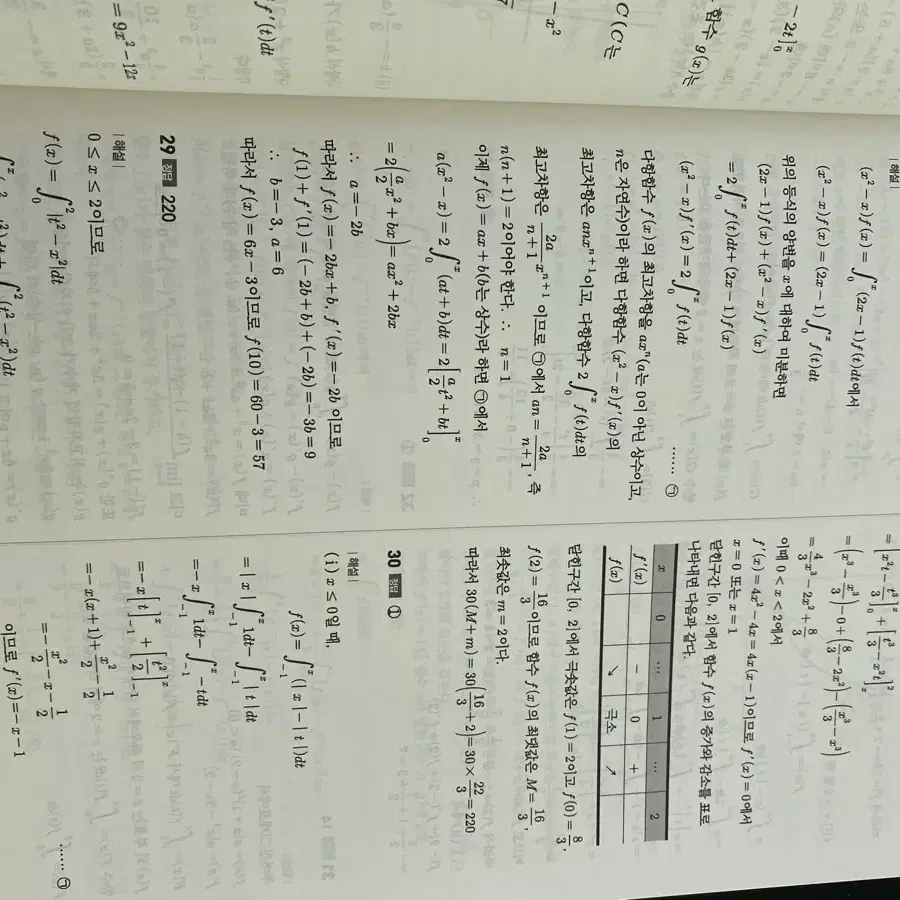 - 2t]₀ˣ
함수 g(x)는
C (C는
- x²
f'(t)dt
= 9x² - 12x
|해설|
(x² - x)f(x) = ∫₀ˣ (2x - 1)f(t)dt에서
(x² - x)f(x) = (2x - 1)∫₀ˣ f(t)dt
위의 등식의 양변을 x에 대하여 미분하면
(2x - 1)f(x) + (x² - x)f'(x)
= 2∫₀ˣ f(t)dt + (2x - 1)f(x)
(x² - x)f'(x) = 2∫₀ˣ f(t)dt …… ㉠
다항함수 f(x)의 최고차항을 axⁿ(a는 0이 아닌 상수이고,
n은 자연수)이라 하면 다항함수 (x² - x)f'(x)의
최고차항은 anxⁿ⁺¹이고, 다항함수 2∫₀ˣ f(t)dt의
최고차항은 2a/(n+1) xⁿ⁺¹ 이므로 ㉠에서 an = 2a/(n+1), 즉
n(n+1) = 2이어야 한다. ∴ n = 1
이제 f(x) = ax + b(b는 상수)라 하면 ㉠에서
a(x² - x) = 2∫₀ˣ (at + b)dt = 2[a/2 t² + bt]₀ˣ
= 2(a/2 x² + bx) = ax² + 2bx
∴ a = -2b
따라서 f(x) = -2bx + b, f'(x) = -2b 이므로
f(1) + f'(1) = (-2b + b) + (-2b) = -3b = 9
∴ b = -3, a = 6
따라서 f(x) = 6x - 3이므로 f(10) = 60 - 3 = 57
29 정답 220
|해설|
0 ≤ x ≤ 2이므로
f(x) = ∫₀² |t² - x²|dt
= [x²t - t³/3]₀ˣ + [t³/3 - x²t]ₓ²
= (x³ - x³/3) - 0 + (8/3 - 2x²) - (x³/3 - x³)
= 4/3 x³ - 2x² + 8/3
이때 0 < x < 2에서
f'(x) = 4x² - 4x = 4x(x - 1)이므로 f'(x) = 0에서
x = 0 또는 x = 1
닫힌구간 [0, 2]에서 함수 f(x)의 증가와 감소를 표로
나타내면 다음과 같다.
x 0 … 1 … 2
f'(x) - 0 +
f(x) ↘ 극소 ↗
닫힌구간 [0, 2]에서 극솟값은 f(1) = 2이고 f(0) = 8/3,
f(2) = 16/3 이므로 함수 f(x)의 최댓값은 M = 16/3,
최솟값은 m = 2이다.
따라서 30(M + m) = 30(16/3 + 2) = 30 × 22/3 = 220
30 정답 ①
|해설|
(i) x ≤ 0일 때,
f(x) = ∫₋₁ˣ (|x| - |t|)dt
= |x|∫₋₁ˣ 1dt - ∫₋₁ˣ |t|dt
= -x∫₋₁ˣ 1dt - ∫₋₁ˣ -tdt
= -x[t]₋₁ˣ + [t²/2]₋₁ˣ
= -x(x + 1) + x²/2 - 1/2
= -x²/2 - x - 1/2 …… ㉠
이므로 f'(x) = -x - 1